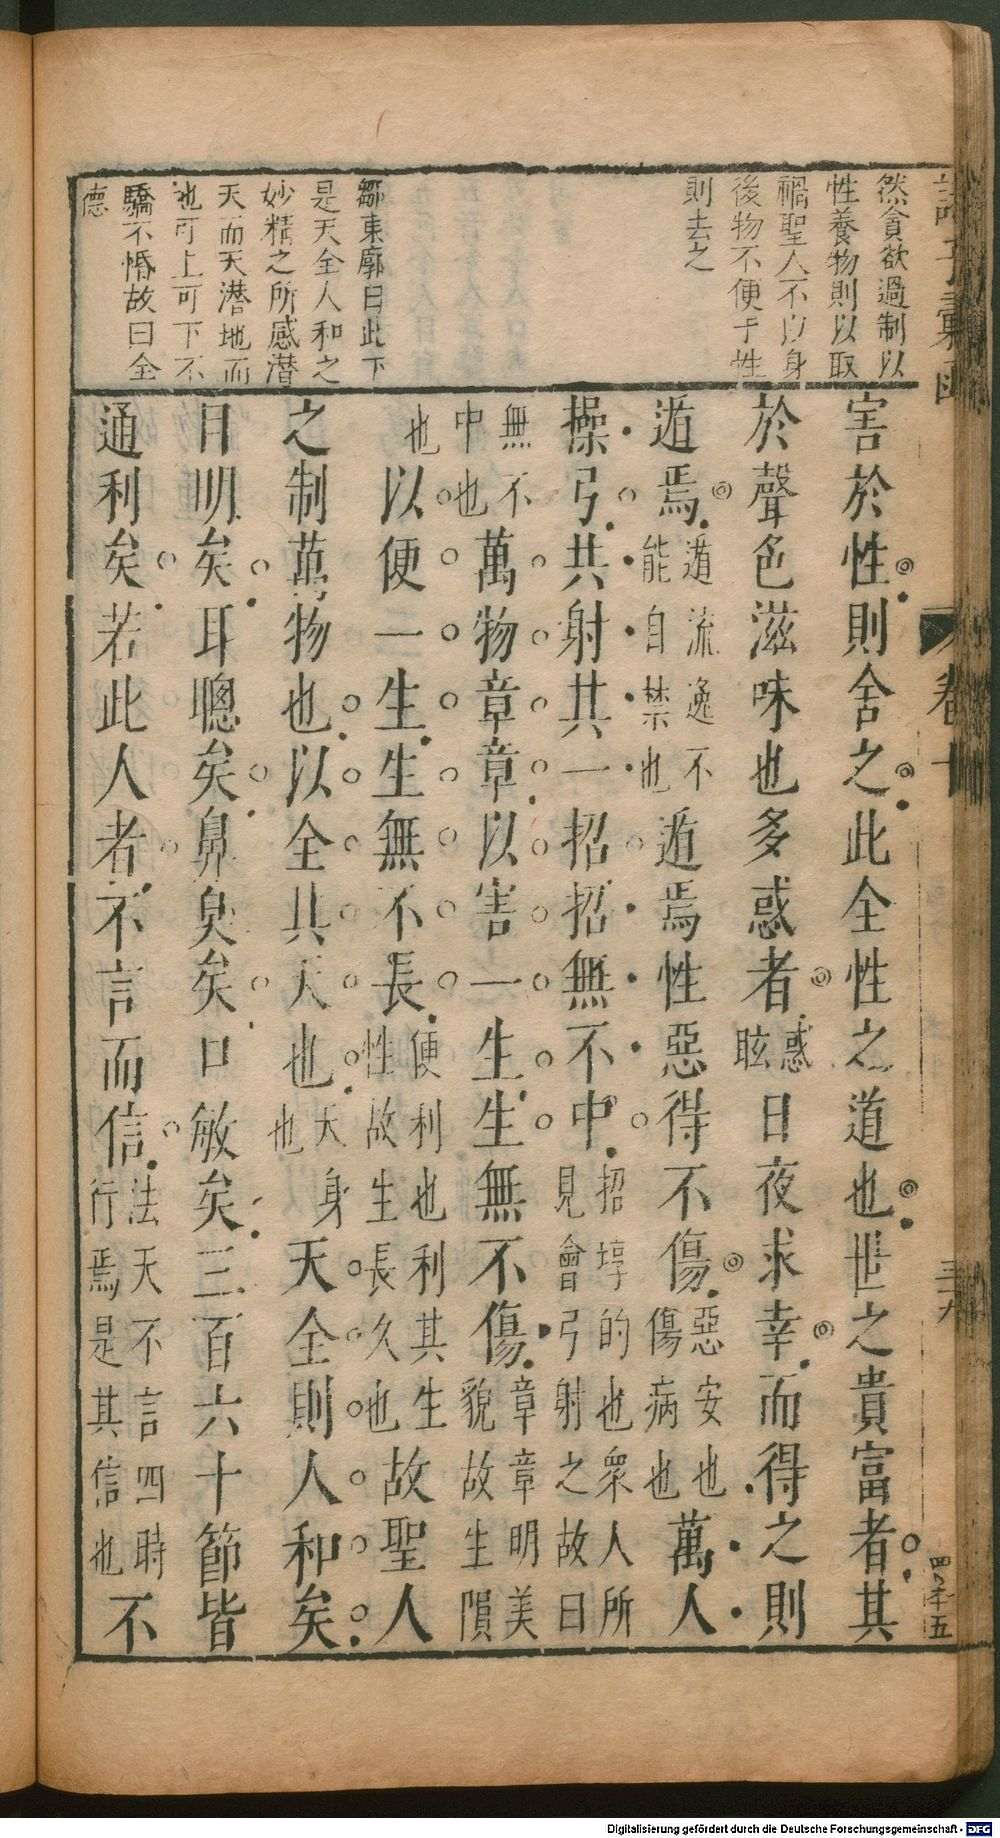 然貪欲過制以
性養物則以取
禍聖人不以身
後物不便于性
則去之
鄒東廓曰此下
是天全人和之
妙精之所感潛
天而天潛地而
地可上可下不
驕不惛故曰全
德
害於性則舍之此全性之道也世之貴富者其
於聲色滋味也多惑者惑眩日夜求幸而得之則
遁焉遁流逸不能自禁也遁焉性惡得不傷惡安也傷病也萬人
操弓共射其一招招無不中招埻的也衆人所見會弓射之故曰
無不中也萬物章章以害一生生無不傷章章明美貌故生隕
也以便一生生無不長便利也利其生性故生長久也故聖人
之制萬物也以全其天也天身也天全則人和矣
目明矣耳聰矣鼻臭矣口敏矣三百六十節皆
通利矣若此人者不言而信法天不言四時行焉是其信也不
諸子彙函
卷十
三十九
Digitalisierung gefördert durch die Deutsche Forschungsgemeinschaft - DFG